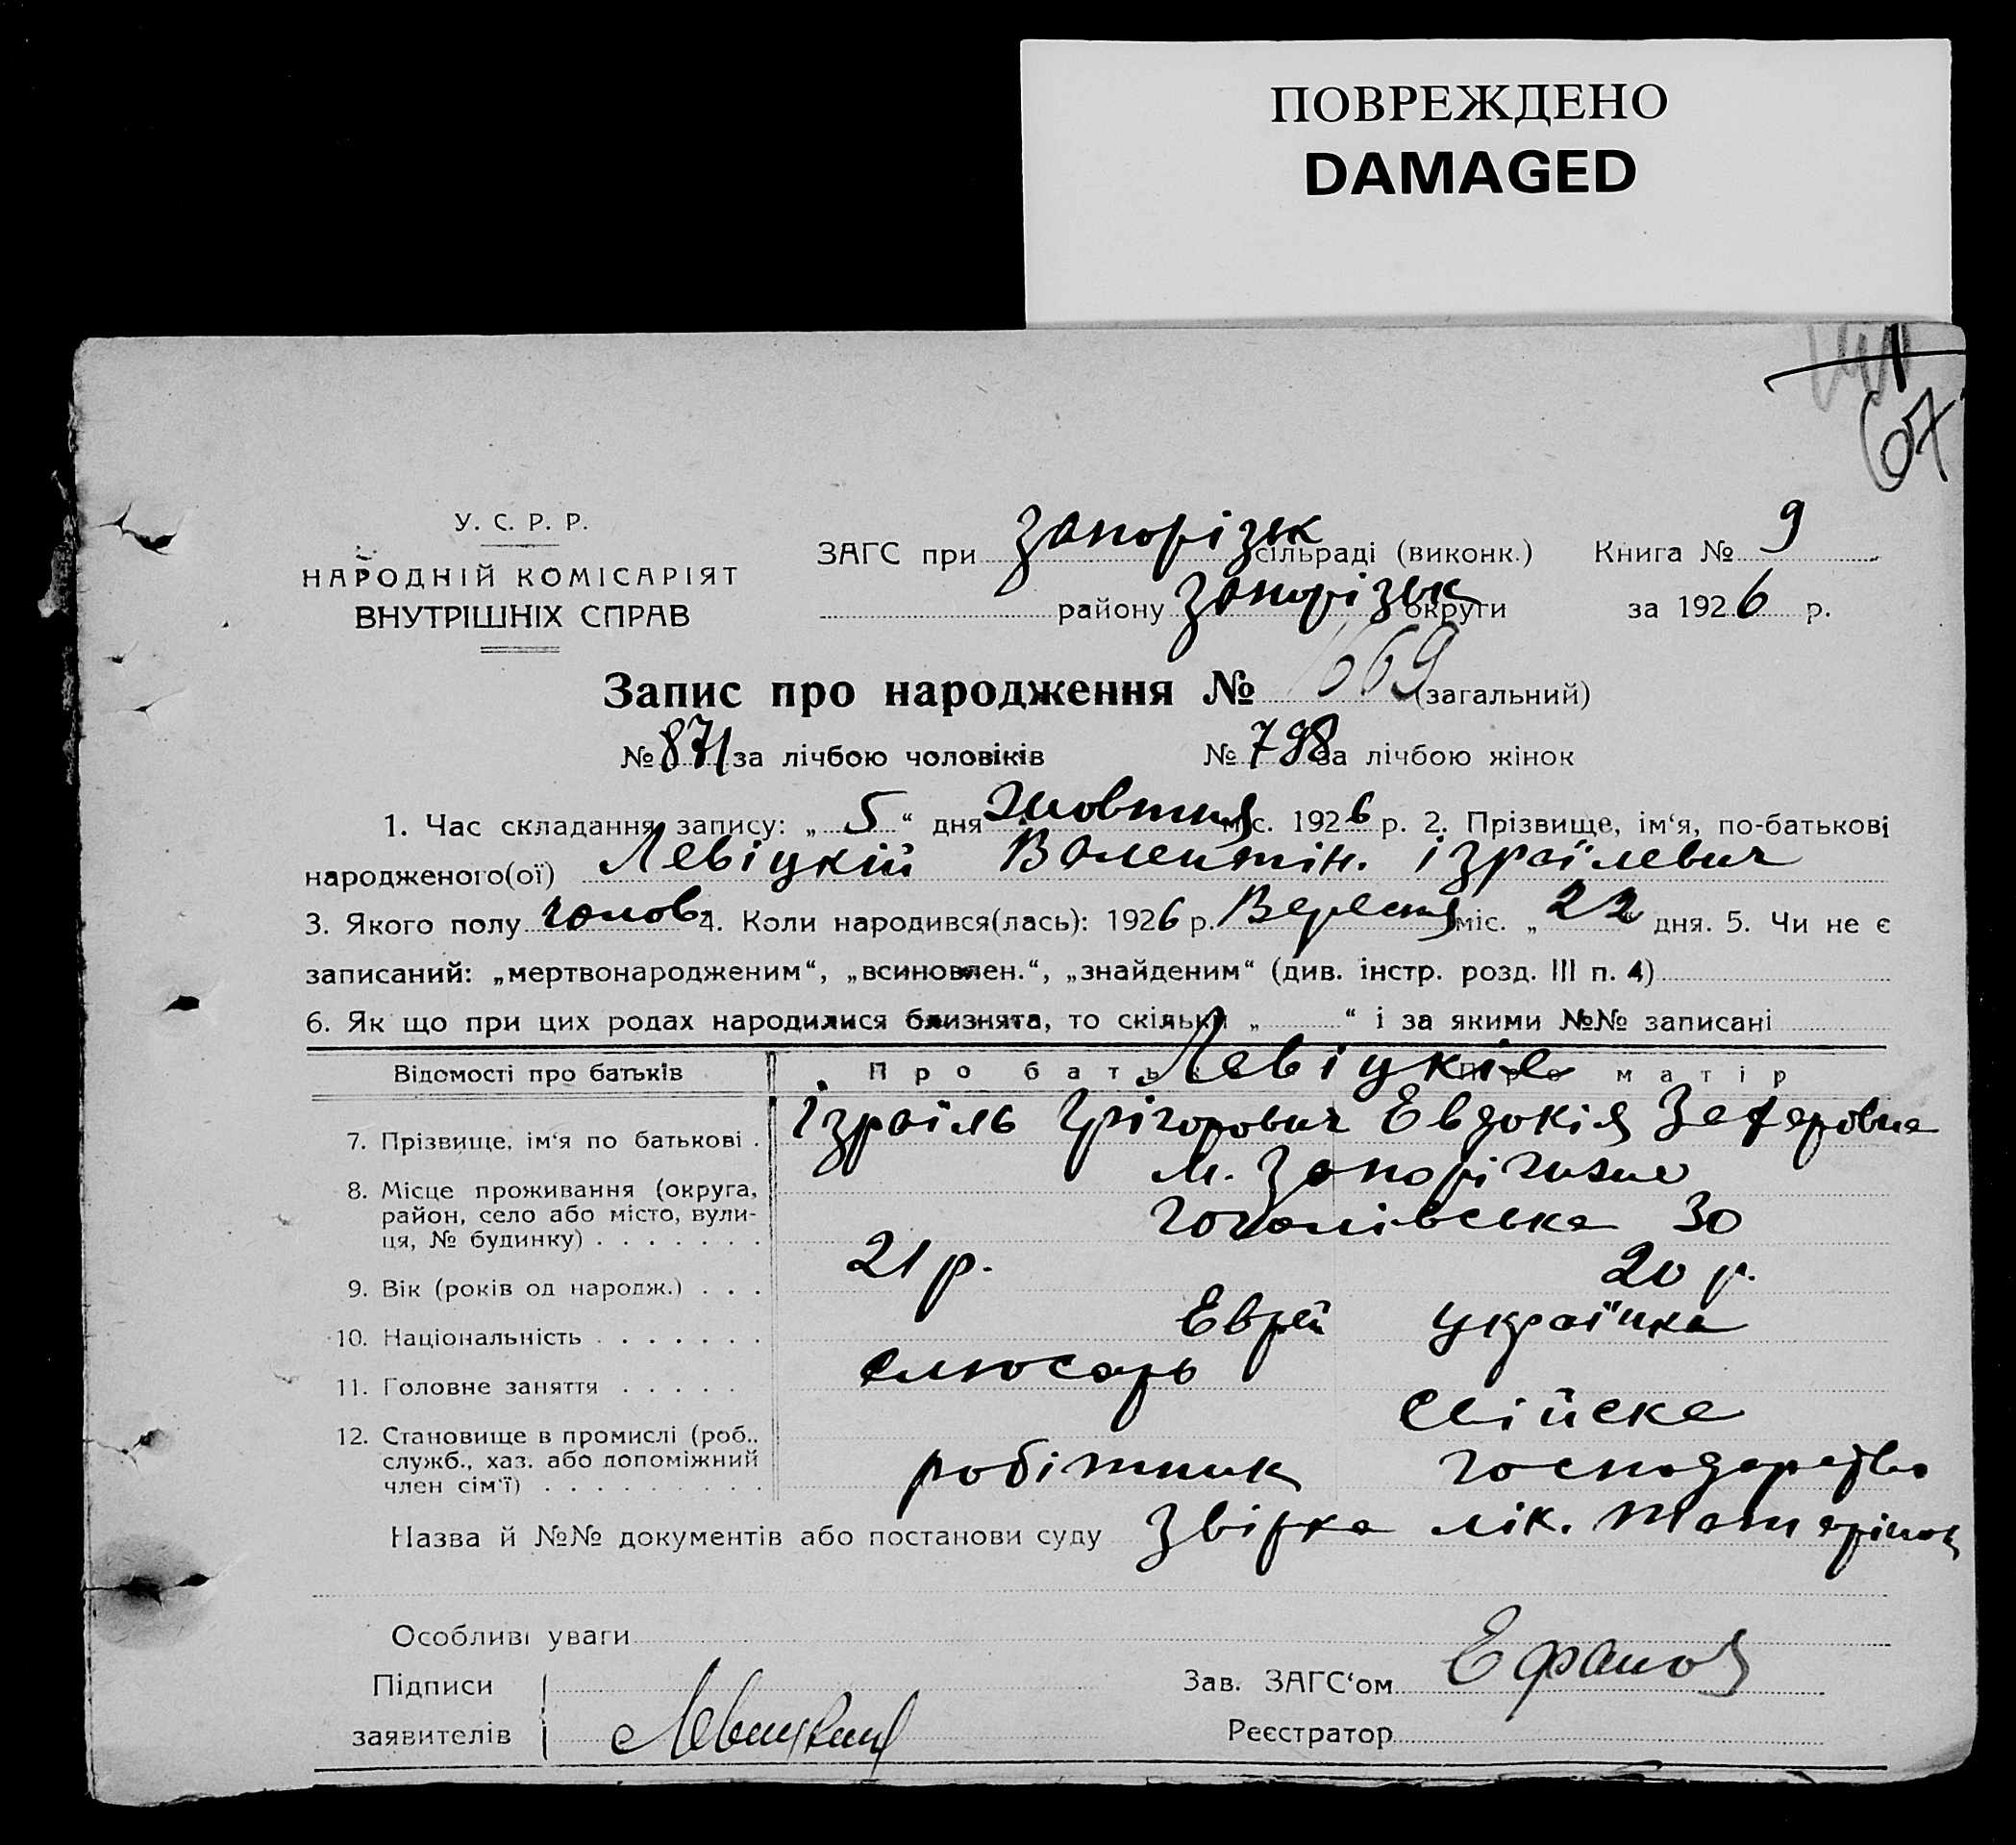 ПОВРЕЖДЕНО
DAMAGED
67
У. С. Р. Р.
НАРОДНІЙ КОМІСАРІЯТ
ВНУТРІШНІХ СПРАВ
ЗАГС при Запорізьк сільраді (виконк.) Книга № 9
району Запорізьк округи за 1926 р.
Запис про народження № 1669 (загальний)
№ 871 за лічбою чоловіків № 798 за лічбою жінок
1. Час складання запису: „ 5 “ дня Жовтня міс. 1926 р. 2. Прізвище, ім‘я, по-батькові
народженого(ої) Левіцкій Валентін. Ізраїлевич
3. Якого полу чолов. 4. Коли народився(лась): 1926 р. Вересня міс. „ 22 дня. 5. Чи не є
записаний: „мертвонародженим“, „всиновлен.“, „знайденим“ (див. інстр. розд. III п. 4)
6. Як що при цих родах народилися близнята, то скільки „ “ і за якими №№ записані
Відомості про батьків Про батька Про матір
Левіцкіе
7. Прізвище, ім‘я по батькові . Ізраіль Грігорович Евдокія
8. Місце проживання (округа, м. Запоріжжє
район, село або місто, вули- Гоголівська 30
ця, № будинку) . . . . . . .
9. Вік (років од народж.) . . . 21 р. 20 р.
10. Національність . . . . . . . Еврей Українка
11. Головне заняття . . . . . слюсарь
12. Становище в промислі (роб.,
служб., хаз. або допоміжний робітник господарство
член сім‘ї) . . . . . . . . .
Назва й №№ документів або постанови суду Звірка лік.
Особливі уваги
Підписи Зав. ЗАГС‘ом
заявителів Левицкий Реєстратор